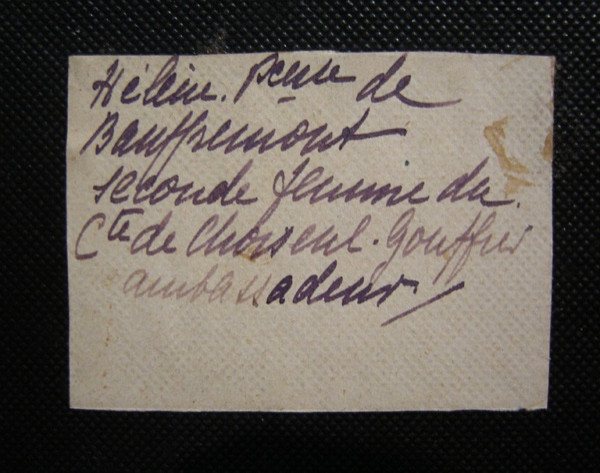 Hélène. Pcesse de
Bauffremont
seconde femme du
Cte de Choiseul. Gouffier
ambassadeur